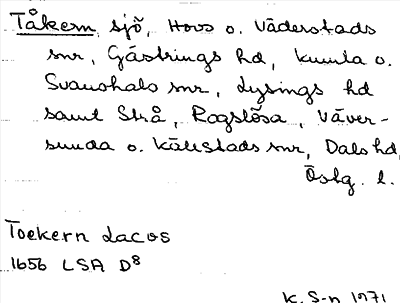 Tåkern, sjö, Hovs o. Väderstads
snr, Gästrings hd, Kumla o.
Svanshals snr, Lysings hd
samt Strå, Rogslösa, Väver-
sunda o. Källstads snr, Dals hd,
Östg. l.
Toekern Lacos
1656 LSA D8
K. S-n 1971